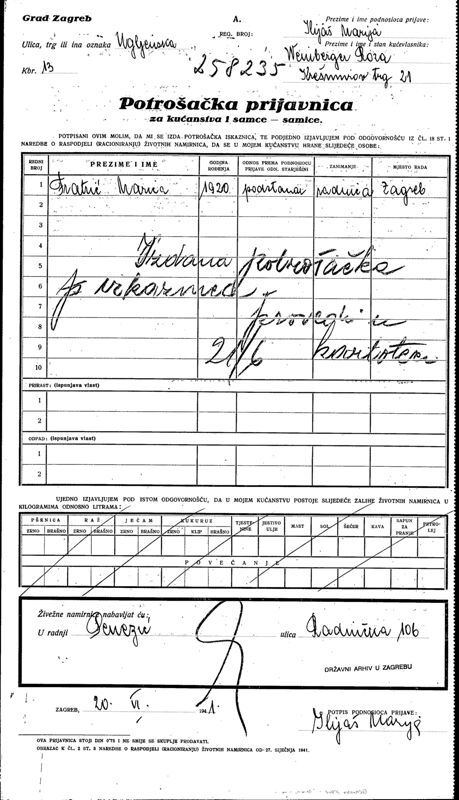 Grad Zagreb
A.
Prezime i ime podnosioca prijave:
REG. BROJ:
Ilijaš Marija
Ulica, trg ili ina oznaka Ugljenska
Prezime i ime i stan kućevlasnika:
Weinberger Róza
Kbr. 13
258235
trg 21
Potrošačka prijavnica
za kućanstva i samce — samice.
POTPISANI OVIM MOLIM, DA MI SE IZDA POTROŠAČKA ISKAZNICA, TE PODJEDNO IZJAVLJUJEM POD ODGOVORNOŠĆU IZ ČL. 18 ST. 1
NAREDBE O RASPODJELI (RACIONIRANJU) ŽIVOTNIH NAMIRNICA, DA SE U MOJEM KUĆANSTVU HRANE SLIJEDEĆE OSOBE:
REDNI BROJ
PREZIME I IME
GODINA ROĐENJA
ODNOS PREMA PODNOSIOCU PRIJAVE ODN. STARJEŠINI
ZANIMANJE
MJESTO RADA
1 Marica 1920 podstanar radnica Zagreb
2
3
4
5 Izdana potrošačka
6
7
8
9 21/6
10
PRIRAST: (ispunjava vlast)
1
2
ODPAD: (ispunjava vlast)
1
2
UJEDNO IZJAVLJUJEM POD ISTOM ODGOVORNOŠĆU, DA U MOJEM KUĆANSTVU POSTOJE SLIJEDEĆE ZALIHE ŽIVOTNIH NAMIRNICA U
KILOGRAMIMA ODNOSNO LITRAMA:
PŠENICA RAŽ JEČAM KUKURUZ TJESTENINE JESTIVO ULJE MAST SOL ŠEĆER KAVA SAPUN ZA PRANJE PETROLEJ
ZRNO BRAŠNO ZRNO BRAŠNO ZRNO BRAŠNO ZRNO KLIP BRAŠNO
POVEĆANJE
Živežne namirnice nabavljat ću:
U radnji Penezić ulica Radnička 106
DRŽAVNI ARHIV U ZAGREBU
ZAGREB, 20. VI. 1941.
POTPIS PODNOSIOCA PRIJAVE:
Ilijaš Marija
OVA PRIJAVNICA STOJI DIN 0'75 I NE SMIJE SE SKUPLJE PRODAVATI.
OBRAZAC K ČL. 2 ST. 3 NAREDBE O RASPODJELI (RACIONIRANJU) ŽIVOTNIH NAMIRNICA OD 27. SIJEČNJA 1941.